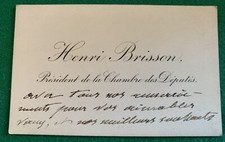 Henri Brisson,
Président de la Chambre des Députés.
avec tous nos remercie-
ments pour vos aimables
vœux, et nos meilleurs souhaits